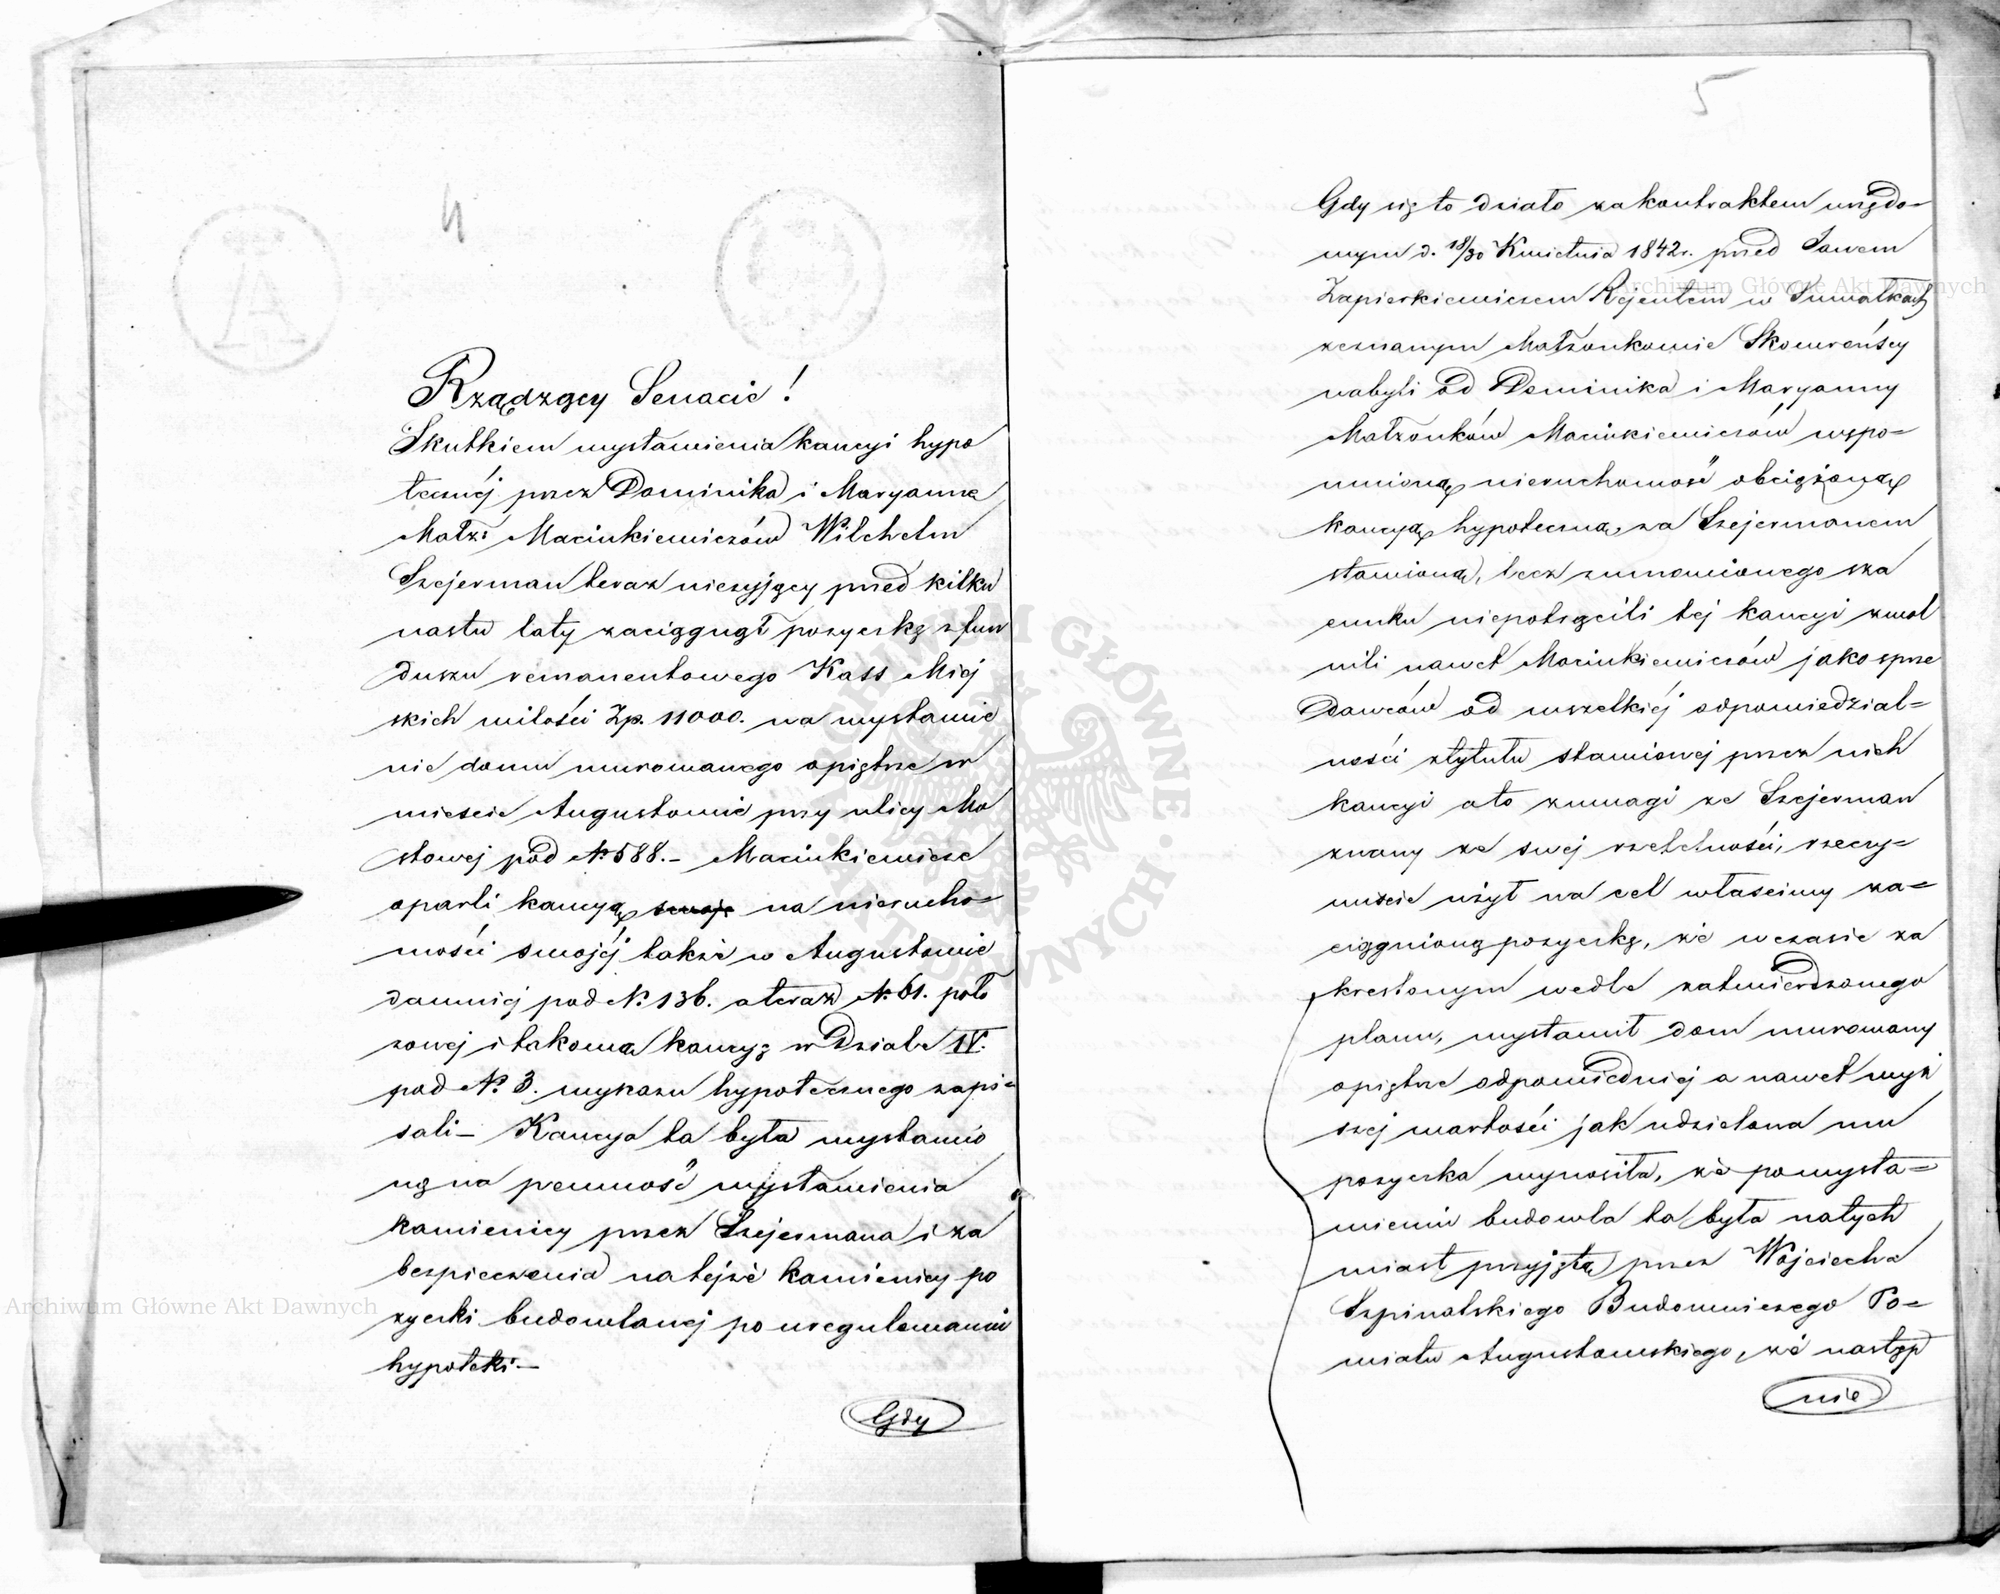 4
Rządzący Senacie!
Skutkiem wystawienia kaucyi hypo
tecznéj przez Dominika i Maryannę
Małż: Maciukiewiczów Wilchelm
Szejerman teraz nieżyjący przed kilku
nastu laty zaciągnął pożyczkę z fun
duszu remanentowego Kass Miej
skich w ilości Zp. 11000. na wystawie
nie domu murowanego o piętrze w
mieście Augustowie przy ulicy Mo
stowej pod № 588.— Maciukiewicze
oparli kaucyą swoje na nierucho=
mości swojéj także w Augustowie
dawniej pod № 136. a teraz № 61. poło
żonej i takową kaucyę w Dziale IV.
pod № 3. wykazu hypotecznego zapi=
sali— Kaucya ta była wystawio
ną na pewność wystawienia
kamienicy przez Szejermana i za
bezpieczenia na tejże kamienicy po
życzki budowlanej po uregulowaniu
hypoteki.—
Gdy
5
Gdy się to działo za kontraktem urzędo=
wym d. 18/30 Kwietnia 1842r. przed Janem
Zapierkiewiczem Rejentem w Suwałkach
zeznanym Małżonkowie Skowrońscy
nabyli od Dominika i Maryanny
Małżonków Maciukiewiczów wspo=
mnioną nieruchomość obciążoną
kaucyą hypoteczną, za Szejermanem
stawioną, lecz z umowionego sza
cunku niepotrącili tej kaucyi zwol
nili nawet Maciukiewiczów jako sprze
dawców od wszelkiéj odpowiedzial=
ności z tytułu stawionej przez nich
kaucyi a to z uwagi że Szejerman
znany ze swej rzetelności, rzeczy=
wiście użył na cel właściwy za=
ciągnioną pożyczkę, że w czasie za
kreślonym wedle zatwierdzonego
planu, wystawił dom murowany
o piętrze odpowiedniéj a nawet wyż
szej wartości jak udzielona mu
pożyczka wynosiła, że po wysta=
wieniu budowla ta była natych
miast przyjętą przez Wojciecha
Szpinalskiego Budowniczego Po=
wiatu Augustowskiego, że następ
nie
Archiwum Główne Akt Dawnych
Archiwum Główne Akt Dawnych
ARCHIWUM GŁÓWNE · AKT DAWNYCH ·